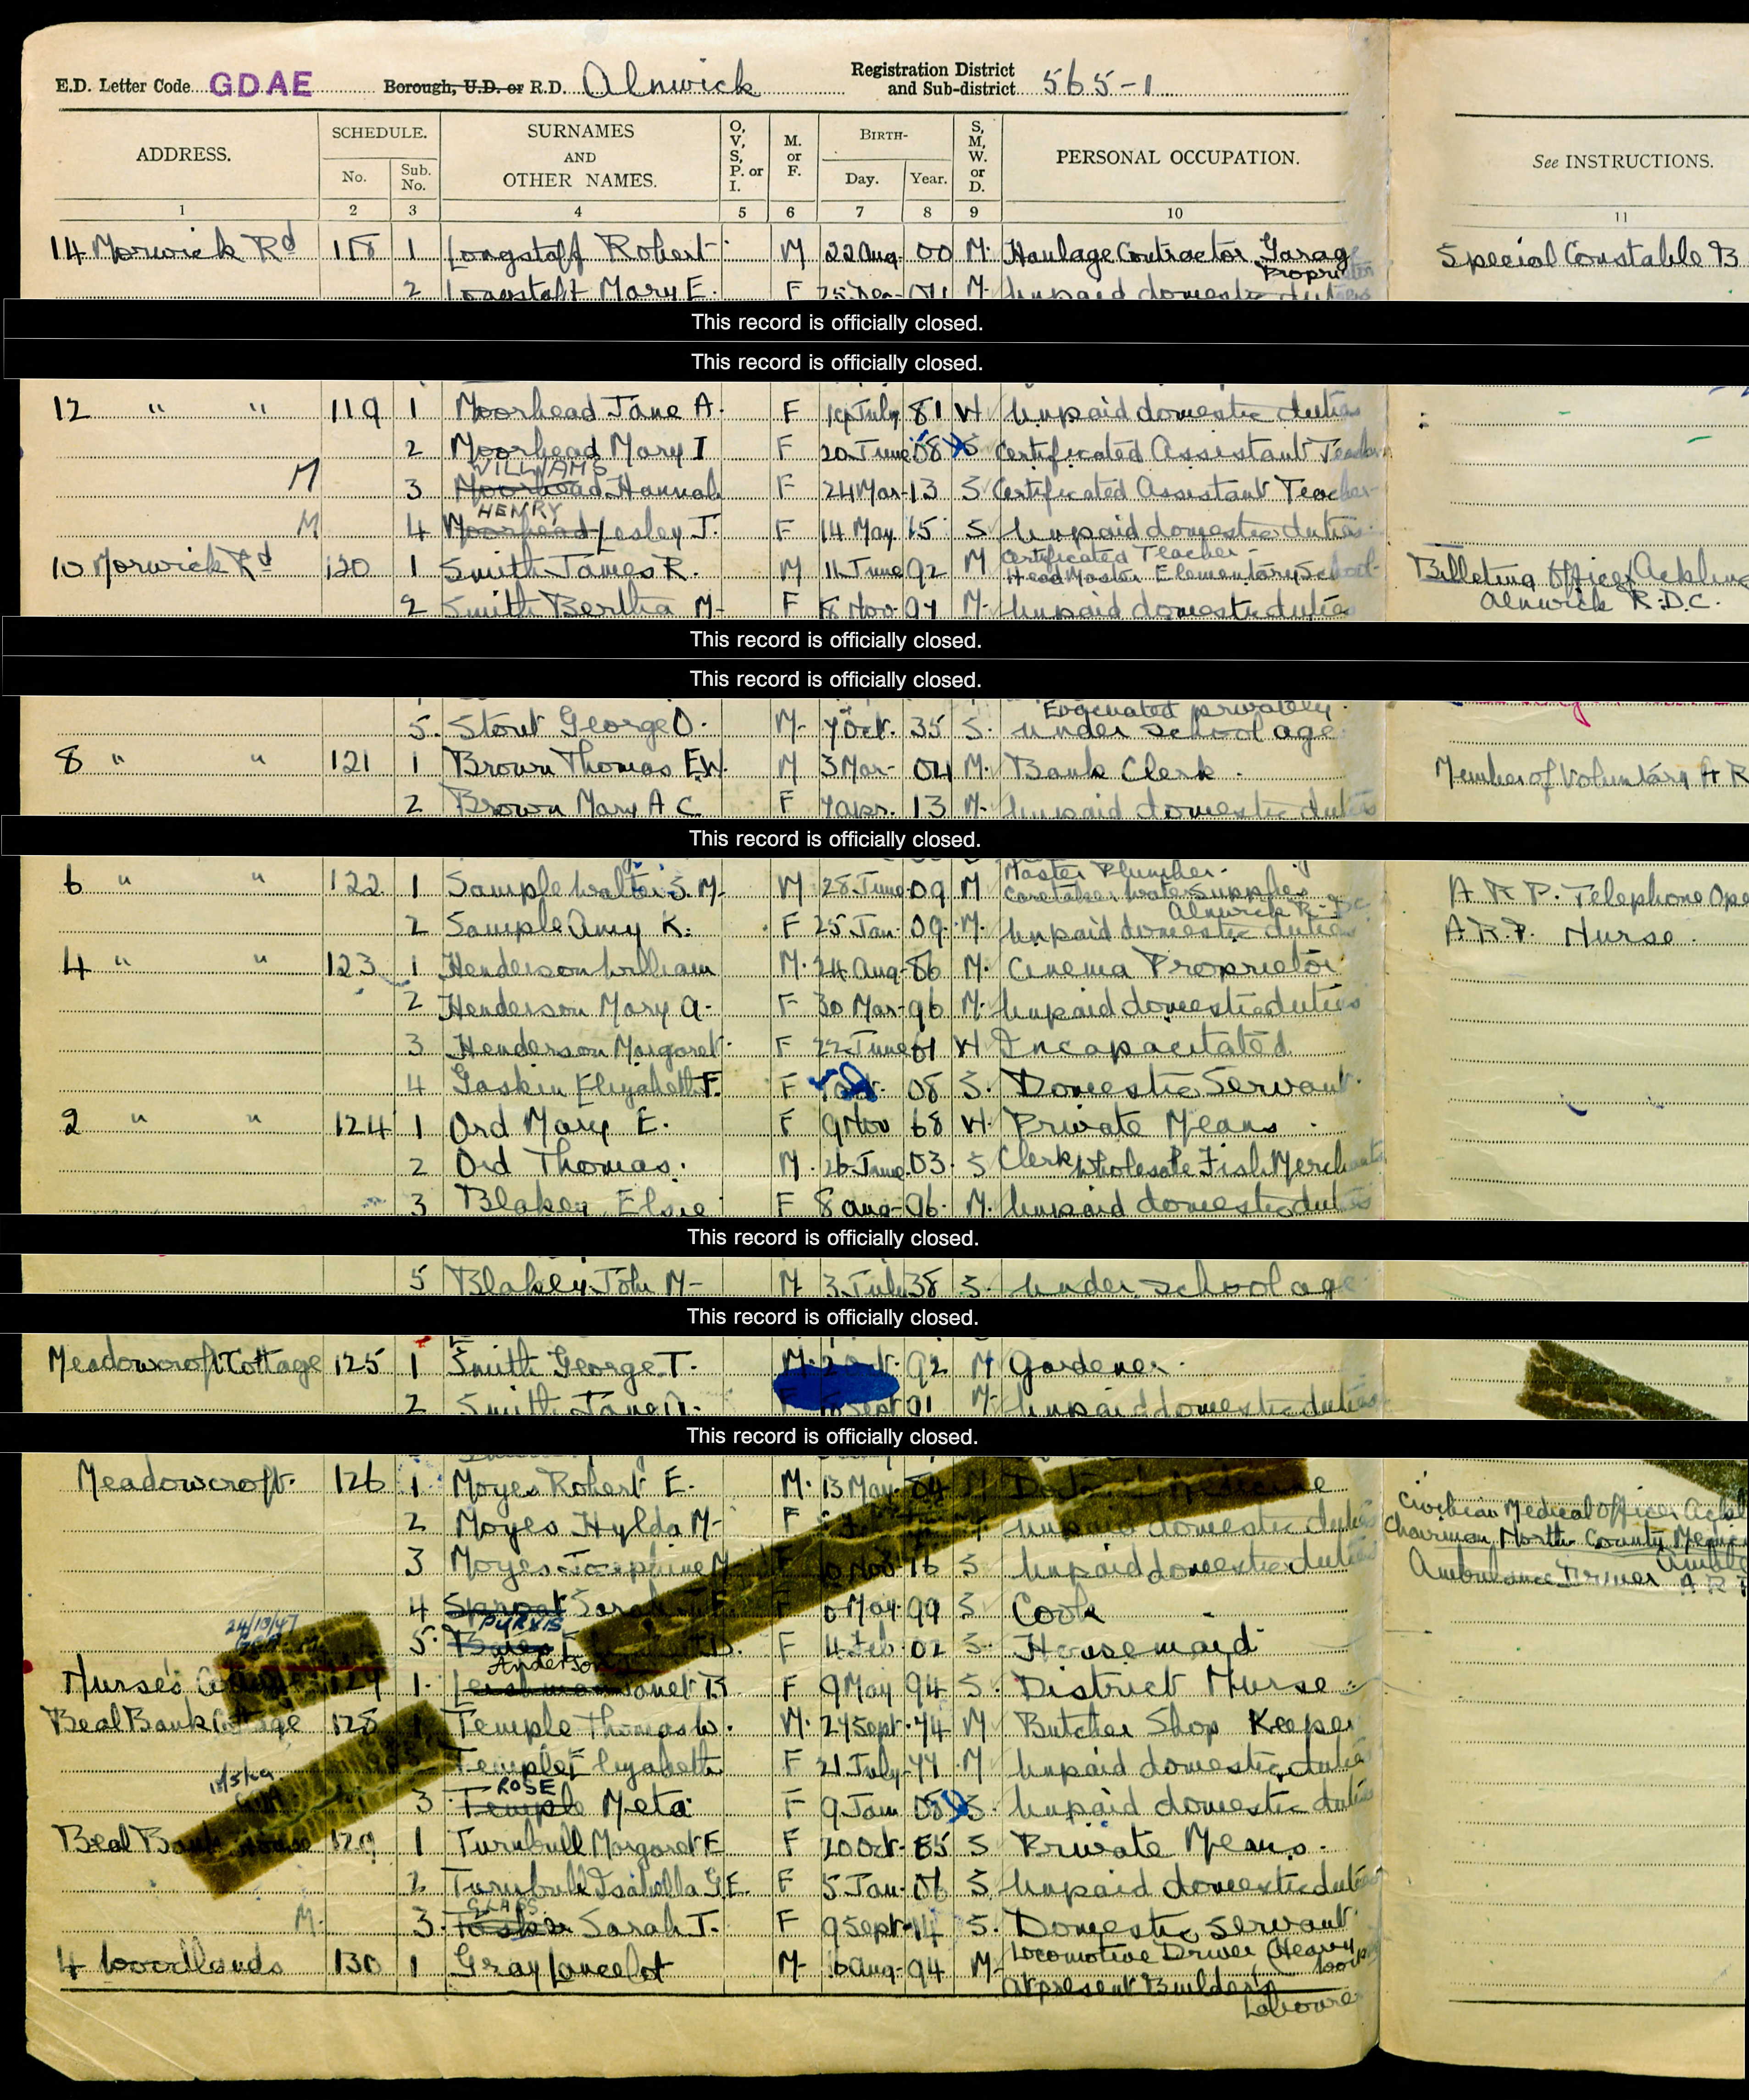 E.D. Letter Code GDAE Borough, U.D. or R.D. Alnwick Registration District and Sub-district 565-1
ADDRESS. SCHEDULE. No. Sub. No. SURNAMES AND OTHER NAMES. O, V, S, P. or I. M. or F. BIRTH- Day. Year. S, M, W. or D. PERSONAL OCCUPATION. See INSTRUCTIONS.
1 2 3 4 5 6 7 8 9 10 11
14 Morwick Rd 118 1 Longstaff Robert M 22 Aug 00 M. Haulage Contractor Garage Proprietor Special Constable B
2 Longstaff Mary E. F 25 M. Unpaid domestic duties
This record is officially closed.
This record is officially closed.
12 " " 119 1 Moorhead Jane A. F July 81 W Unpaid domestic duties
2 Moorhead Mary I F 20 June 08 S Certificated Assistant Teacher
WILLIAMS
M 3 Moorhead Hannah F 24 Mar 13 S Certificated Assistant Teacher
HENRY
M 4 Moorhead Lesley J. F 14 May 15 S Unpaid domestic duties
10 Morwick Rd 120 1 Smith James R. M 11 June 92 M Certificated Teacher - Head Master Elementary School Billeting Officer Acklin
2 Smith Bertha M- F 8 Nov 97 M- Unpaid domestic duties Alnwick R.D.C.
This record is officially closed.
This record is officially closed.
Evacuated privately.
5. Stout George O. M- 7 Oct. 35 S. under school age
8 " " 121 1 Brown Thomas E.W. M 3 Mar- 04 M. Bank Clerk. Member of Voluntary A R
2 Brown Mary A C. F 7 Apr. 13 M. Unpaid domestic duties
This record is officially closed.
6 " " 122 1 Sample Walter S. M- M 28 June 09 M Master Plumber. Caretaker Water Supplies Alnwick R.D.C. A R P. Telephone Ope
2 Sample Amy K. F 25 Jan. 09. M. Unpaid domestic duties A.R.P. Nurse.
4 " " 123 1 Henderson William M. 24 Aug-86 M. Cinema Proprietor
2 Henderson Mary A- F 30 Mar-96 M. Unpaid domestic duties
3 Henderson Margaret F 22 June 61 W Incapacitated
4 Gaskin Elizabeth F. F Oct. 08 S. Domestic Servant.
2 " " 124 1 Ord Mary E. F 9 Nov 68 W. Private Means.
2 Ord Thomas. M. 26 June 03. S Clerk Wholesale Fish Merchants
3 Blakey Elsie F 8 Aug-96. M. Unpaid domestic duties
This record is officially closed.
5 Blakey John M- M 3 July 38 S. Under school age
This record is officially closed.
Meadowcroft Cottage 125 1 Smith George T. M. 2 Oct. 92 M Gardener.
2 Smith Jane F Sept 91 M- Unpaid domestic duties
This record is officially closed.
Meadowcroft. 126 1 Moyes Robert E. M. 13 May 84 M Doctor Medicine Civilian Medical Officer Ackl
2 Moyes Hylda M- F Unpaid domestic duties Chairman North County Medic
3 Moyes Josephine M F Nov 16 S. Unpaid domestic duties Ambulance Driver A.R.P
4 Sproat Sarah F 6 May 99 S. Cook
24/10/47 PURVIS
5. F 4 Feb. 02 S. Housemaid
Anderson
Nurse's 127 1. Janet B F 9 May 94 S. District Nurse.
Beal Bank Cottage 128 1 Temple Thomas W. M. 27 Sept. 74 M Butcher Shop Keeper
Temple Elizabeth F 21 July 77 M Unpaid domestic duties
ROSE
3 Temple Meta F 9 Jan 08 S. Unpaid domestic duties
Beal Bank House 129 1 Turnbull Margaret E F 20 Oct- 65 S Private Means.
2 Turnbull Isabella G.E. F 5 Jan- 06 S Unpaid domestic duties
GLASS
M. 3. Sarah J. F 9 Sept 14 S. Domestic Servant
4 Woodlands 130 1 Gray Lancelot M- 6 Aug- 94 M- Locomotive Driver (Heavy
at present Builder's Labourer